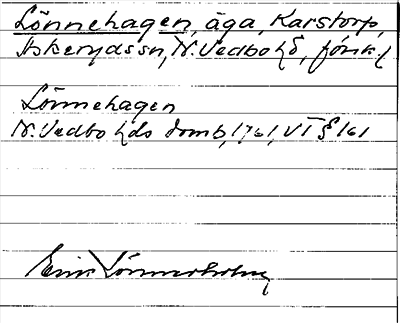 Lönnehagen, äga, Karstorp,
Askeryds sn, N. Vedbo hd, förk. f
Lönnehagen
N. Vedbo hds domb, 1761, VT § 161
Erik Lönnerholm